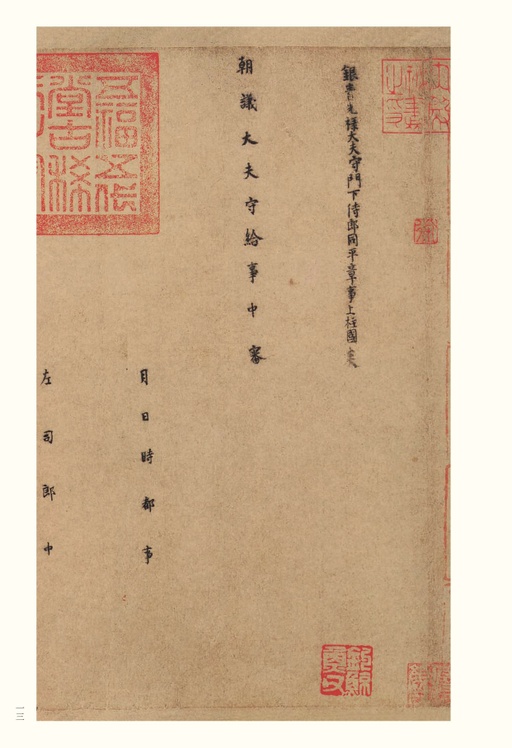 銀青光祿大夫守門下侍郎同平章事上柱國
朝議大夫守給事中審
月日時都事
左司郎中
五福五代
堂古稀
一三